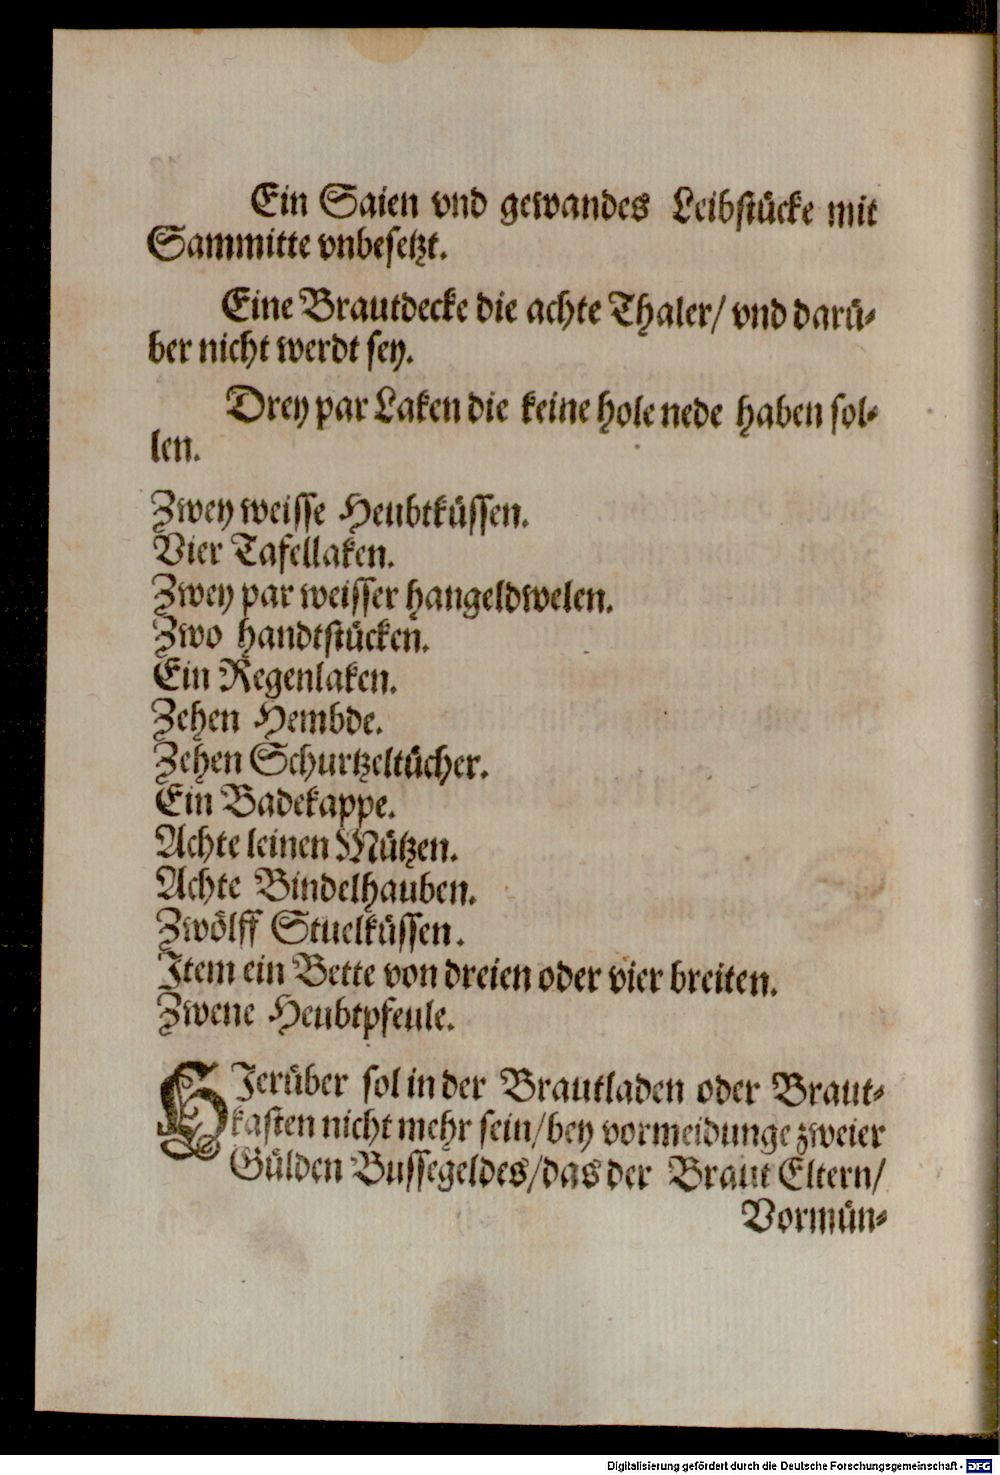 Ein Saien vnd gewandes Leibstücke mit
Sammitte vnbesetzt.
Eine Brautdecke die achte Thaler/ vnd darü-
ber nicht werdt sey.
Drey par Laken die keine hole nede haben sol-
len.
Zwey weisse Heubtküssen.
Vier Tafellaken.
Zwey par weisser hangeldwelen.
Zwo handtstücken.
Ein Regenlaken.
Zehen Hembde.
Zehen Schurtzeltücher.
Ein Badekappe.
Achte leinen Mützen.
Achte Bindelhauben.
Zwölff Stuelküssen.
Item ein Bette von dreien oder vier breiten.
Zwene Heubtpfeule.
HIerüber sol in der Brautladen oder Braut-
kasten nicht mehr sein/bey vormeidunge zweier
Gülden Bussegeldes/das der Braut Eltern/
Vormün-
Digitalisierung gefördert durch die Deutsche Forschungsgemeinschaft - DFG